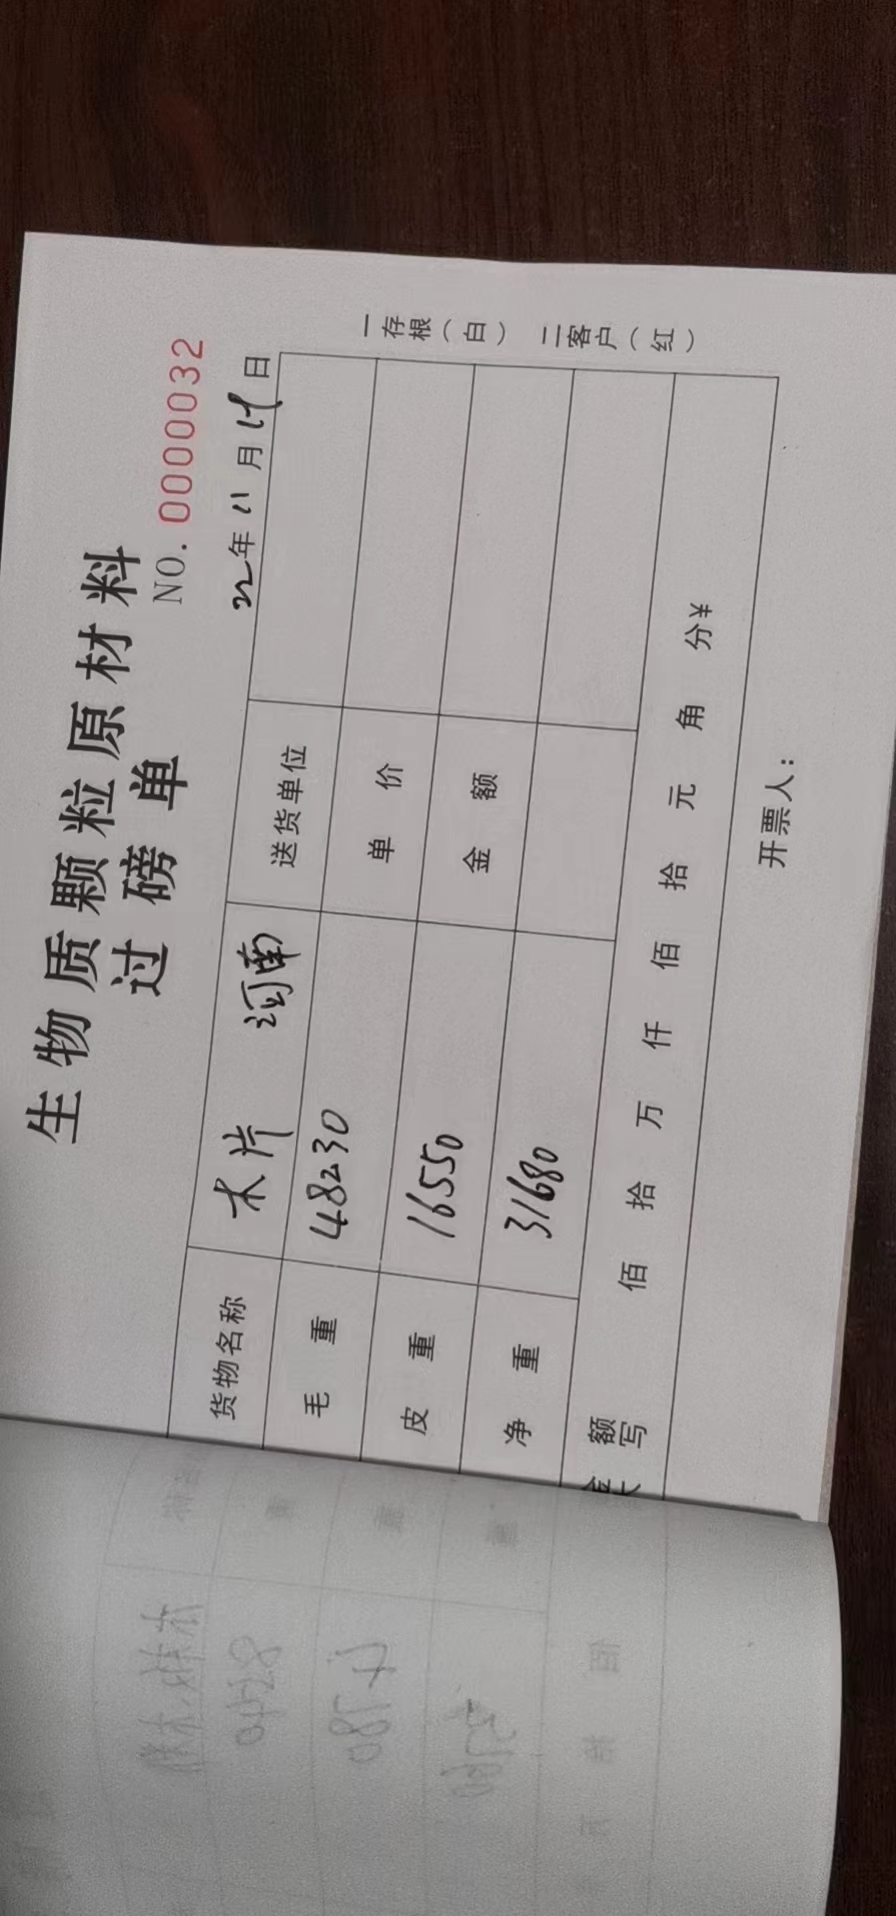 生物质颗粒原材料
过磅单
NO. 0000032
22年11月19日
货物名称 木片 河南 送货单位
毛重 48230 单价
皮重 16550 金额
净重 31680
金额大写 佰 拾 万 仟 佰 拾 元 角 分 ¥
开票人：
一存根（白） 二客户（红）